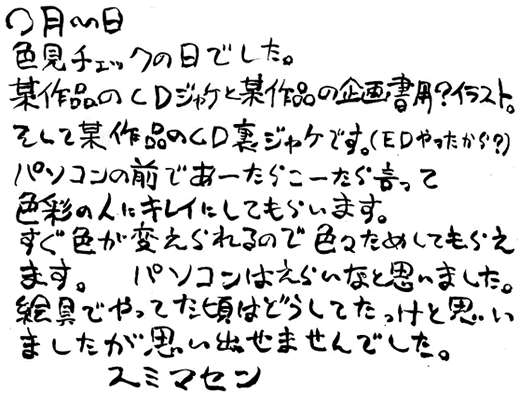 ○月○○日
色見チェックの日でした。
某作品のCDジャケと某作品の企画書用?イラスト。
そして某作品のCD裏ジャケです。(EDやったから?)
パソコンの前であーたらこーたら言って
色彩の人にキレイにしてもらいます。
すぐ色が変えられるので色々ためしてもらえ
ます。 パソコンはえらいなと思いました。
絵具でやってた頃はどうしてたっけと思い
ましたが思い出せませんでした。
スミマセン